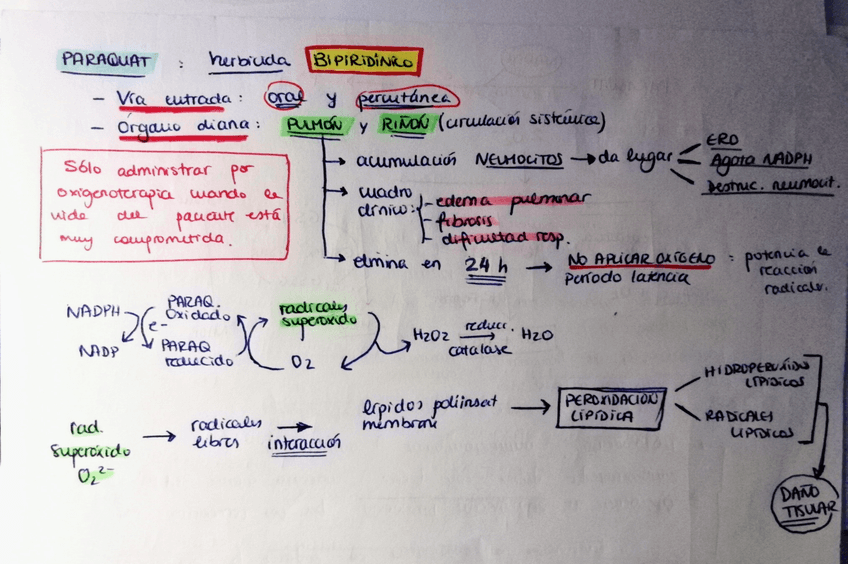 PARAQUAT : herbicida BIPIRIDÍNICO
- Vía entrada: oral y percutánea
- Órgano diana: PULMÓN y RIÑÓN (circulación sistémica)
Sólo administrar por
oxigenoterapia cuando la
vida del paciente está
muy comprometida.
acumulación NEUMOCITOS → da lugar
ERO
Agota NADPH
Destruc. neumocit.
cuadro
clínico:
- edema pulmonar
- fibrosis
- dificultad resp.
elmina en 24 h → NO APLICAR OXÍGENO : potencia la
Período latencia
reacción
radicales.
NADPH
NADP
e-
PARAQ.
Oxidado
PARAQ
reducido
radicales
superóxido
O2
H2O2 → H2O
reducc.
catalase
rad.
superóxido
O2 2-
→ radicales
libres
→
interacción
lípidos poliinsat
membrana
→ PEROXIDACIÓN
LIPÍDICA
HIDROPERÓXIDOS
LIPÍDICOS
RADICALES
LIPÍDICOS
DAÑO
TISULAR